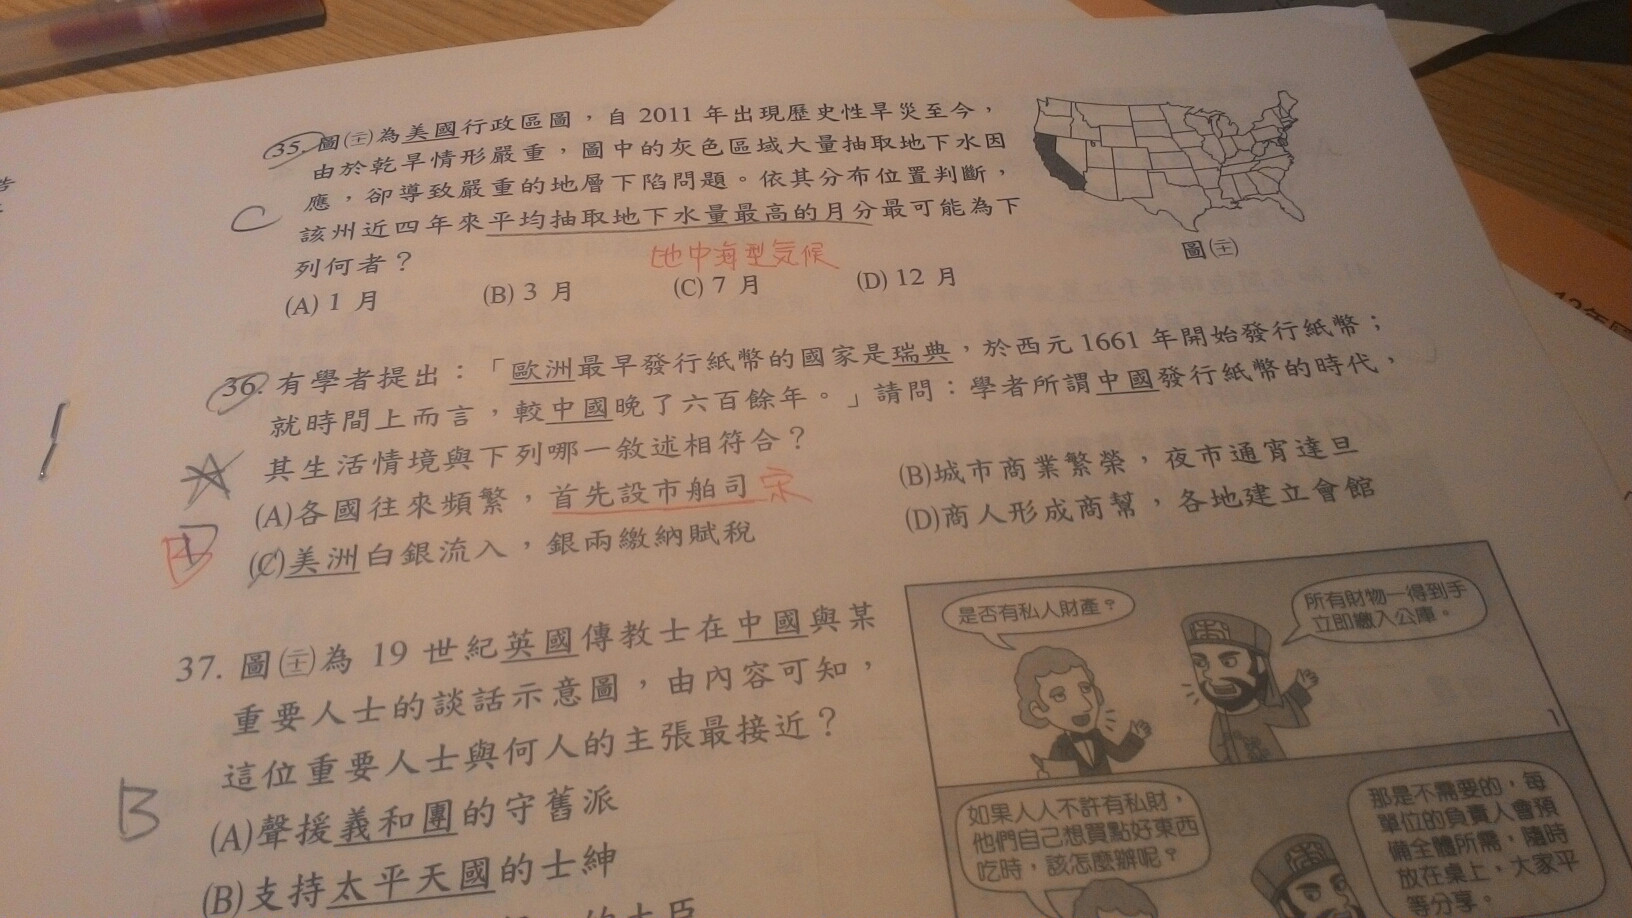 35. 圖(二十)為美國行政區圖，自 2011 年出現歷史性旱災至今，
由於乾旱情形嚴重，圖中的灰色區域大量抽取地下水因
應，卻導致嚴重的地層下陷問題。依其分布位置判斷，
該州近四年來平均抽取地下水量最高的月分最可能為下
列何者？
C
地中海型氣候
(A) 1 月 (B) 3 月 (C) 7 月 (D) 12 月
圖(二十)
36. 有學者提出：「歐洲最早發行紙幣的國家是瑞典，於西元 1661 年開始發行紙幣；
就時間上而言，較中國晚了六百餘年。」請問：學者所謂中國發行紙幣的時代，
其生活情境與下列哪一敘述相符合？
(A)各國往來頻繁，首先設市舶司 宋 (B)城市商業繁榮，夜市通宵達旦
(C)美洲白銀流入，銀兩繳納賦稅 (D)商人形成商幫，各地建立會館
B
37. 圖(二十一)為 19 世紀英國傳教士在中國與某
重要人士的談話示意圖，由內容可知，
這位重要人士與何人的主張最接近？
B
(A)聲援義和團的守舊派
(B)支持太平天國的士紳
的大臣
是否有私人財產？
所有財物一得到手
立即繳入公庫。
如果人人不許有私財，
他們自己想買點好東西
吃時，該怎麼辦呢？
那是不需要的，每
單位的負責人會預
備全體所需，隨時
放在桌上，大家平
等分享。